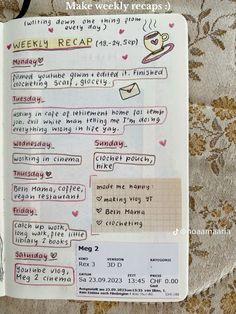 Make weekly recaps :)
(writing down one thing from every day)
WEEKLY RECAP
(18.-24. Sep)
Monday
Filmed youtube q&a + edited it. Finished
crocheting scarf, grocery.
Tuesday
asking in cafe of retirement home for temp
job. evil white man telling me I'm doing
everything wrong in life yay.
Wednesday
working in cinema
Thursday
Bern Mama, coffee,
vegan restaurant
Friday
catch up work,
long walk, free little
library 2 books
Saturday
youtube vlog,
Meg 2 cinema
Sunday
crochet pouch,
hike
made me happy:
making vlog yt
Bern Mama
crocheting
Meg 2
KINO
VERSION
KATEGORIE
Rex 3
3D D
DATUM
ZEIT
PREIS
Sa 23.09.2023
13:45
CHF 0.00